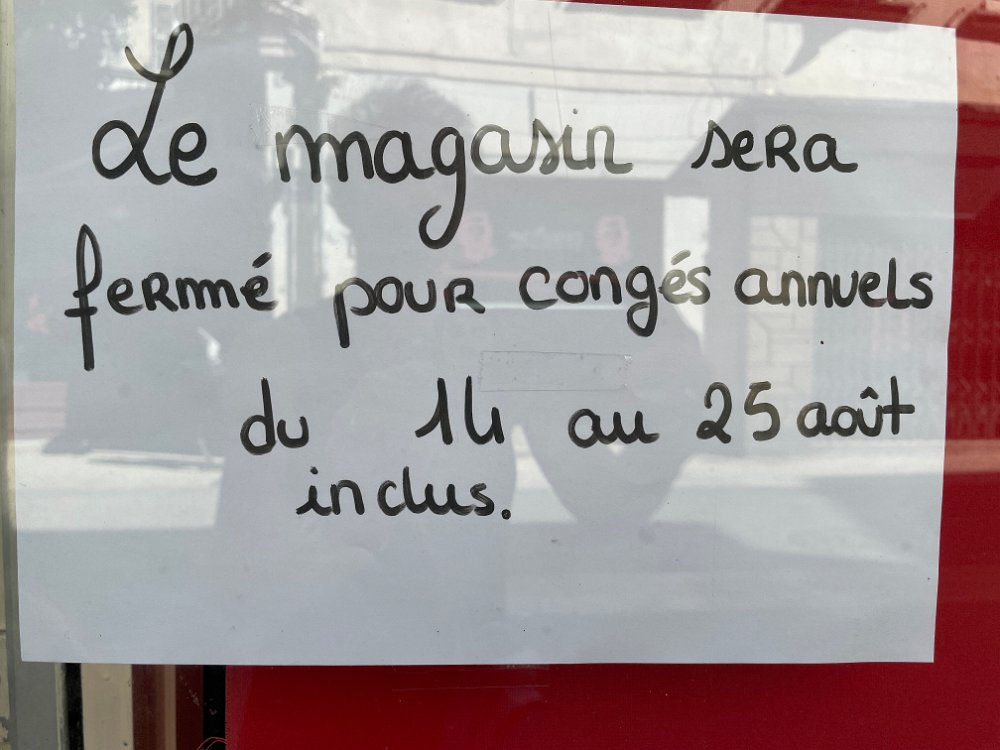 Le magasin sera
fermé pour congés annuels
du 14 au 25 août
inclus.